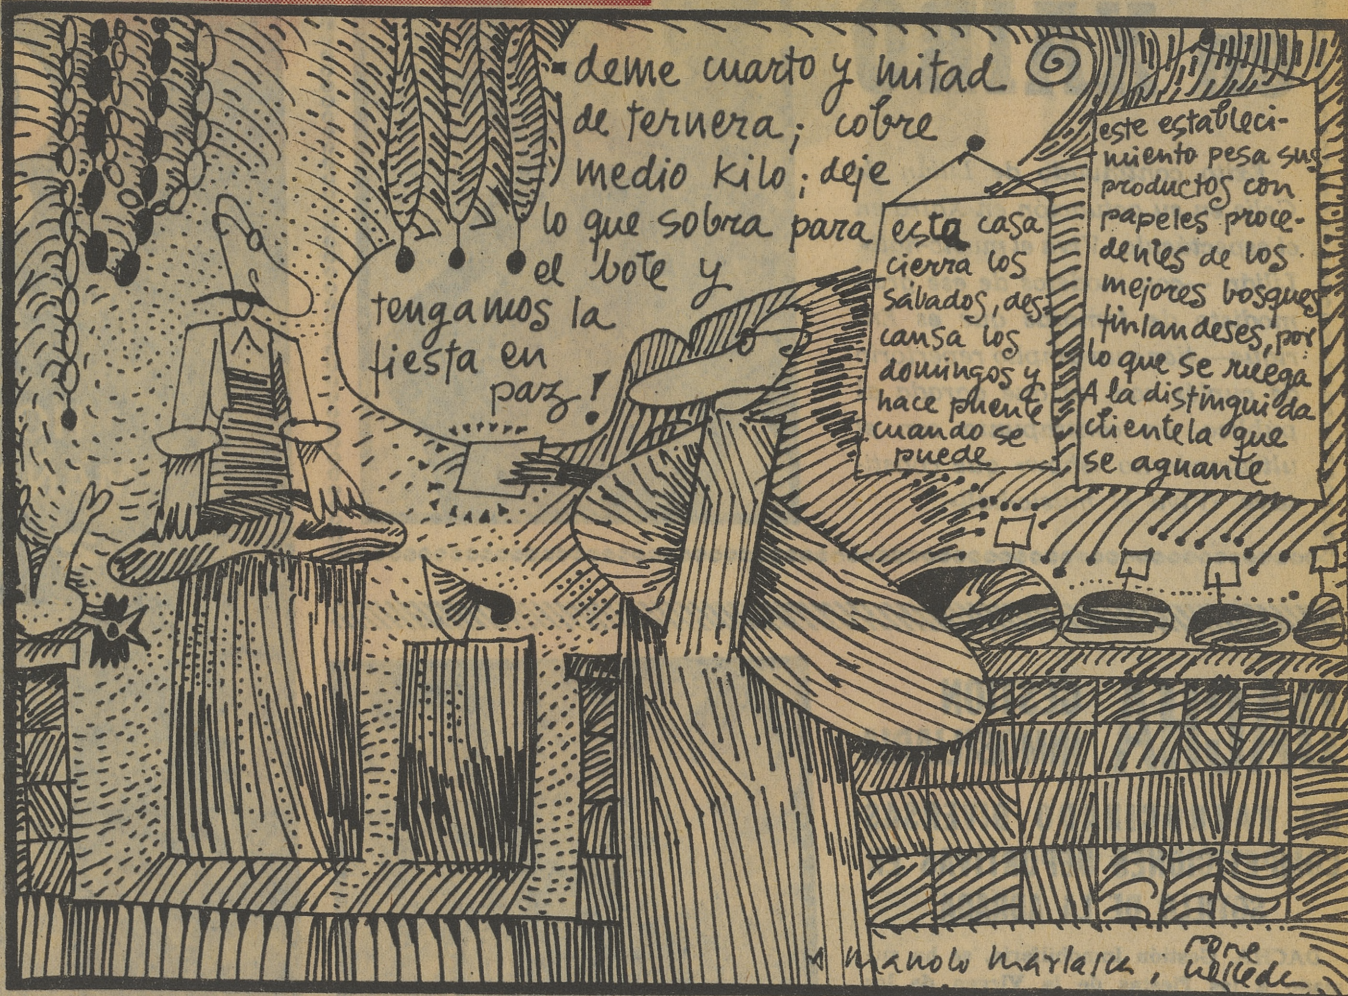 deme cuarto y mitad
de ternera; cobre
medio kilo; deje
lo que sobra para
el bote y
tengamos la
fiesta en
paz!
esta casa
cierra los
sábados, des-
cansa los
domingos y
hace puente
cuando se
puede
este estableci-
miento pesa sus
productos con
papeles proce-
dentes de los
mejores bosques
finlandeses, por
lo que se ruega
A la distinguida
clientela que
se aguante
A manolo marlasca,